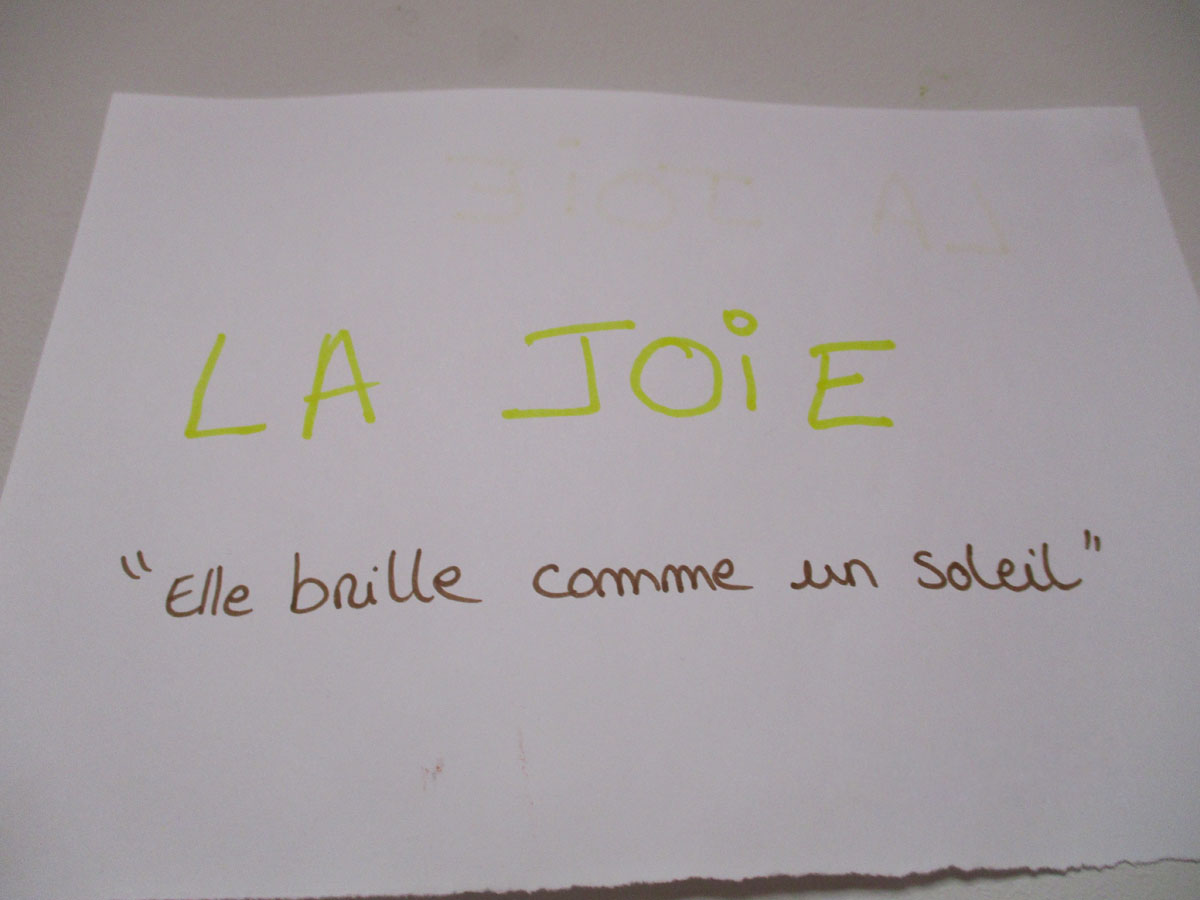 LA JOiE
LA JOiE
"Elle brille comme un soleil"